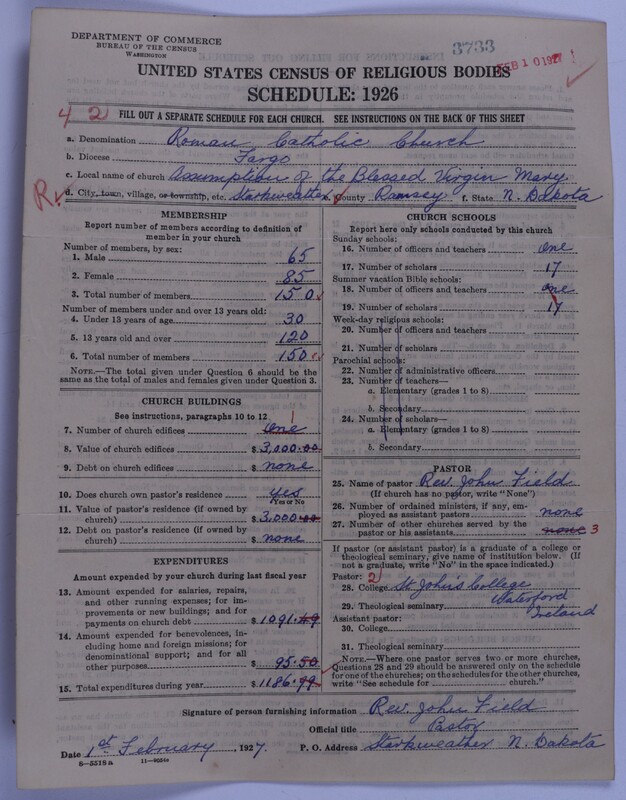 DEPARTMENT OF COMMERCE
BUREAU OF THE CENSUS
WASHINGTON
3733
FEB 10 1927
UNITED STATES CENSUS OF RELIGIOUS BODIES
SCHEDULE: 1926
4 2
FILL OUT A SEPARATE SCHEDULE FOR EACH CHURCH. SEE INSTRUCTIONS ON THE BACK OF THIS SHEET
a. Denomination Roman Catholic Church
b. Diocese Fargo
c. Local name of church Assumption of the Blessed Virgin Mary
R. d. City, town, village, or township, etc. Starkweather e. County Ramsey f. State N. Dakota
MEMBERSHIP
Report number of members according to definition of
member in your church
Number of members, by sex:
1. Male 65
2. Female 85
3. Total number of members 150
Number of members under and over 13 years old:
4. Under 13 years of age 30
5. 13 years old and over 120
6. Total number of members 150
NOTE.—The total given under Question 6 should be the
same as the total of males and females given under Question 3.
CHURCH BUILDINGS
See instructions, paragraphs 10 to 12
1
7. Number of church edifices One
8. Value of church edifices $ 3,000.00
9. Debt on church edifices $ none
10. Does church own pastor's residence yes
Yes or No
11. Value of pastor's residence (if owned by
church) $ 3,000.00
12. Debt on pastor's residence (if owned by
church) $ none
EXPENDITURES
Amount expended by your church during last fiscal year
13. Amount expended for salaries, repairs,
and other running expenses; for im-
provements or new buildings; and for
payments on church debt $ 1091.49
14. Amount expended for benevolences, in-
cluding home and foreign missions; for
denominational support; and for all
other purposes 95.50
15. Total expenditures during year $ 1186.99
CHURCH SCHOOLS
Report here only schools conducted by this church
Sunday schools:
16. Number of officers and teachers one
17. Number of scholars 17
Summer vacation Bible schools:
18. Number of officers and teachers one
19. Number of scholars 17
Week-day religious schools:
20. Number of officers and teachers
21. Number of scholars
Parochial schools:
22. Number of administrative officers
23. Number of teachers—
a. Elementary (grades 1 to 8)
b. Secondary
24. Number of scholars—
a. Elementary (grades 1 to 8)
b. Secondary
PASTOR
25. Name of pastor Rev. John Field
(If church has no pastor, write "None")
26. Number of ordained ministers, if any, em-
ployed as assistant pastors none
27. Number of other churches served by the
pastor or his assistants none 3
If pastor (or assistant pastor) is a graduate of a college or
theological seminary, give name of institution below. (If
not a graduate, write "No" in the space indicated.)
Pastor: 2
28. College St John's College
29. Theological seminary Waterford
Assistant pastor: Ireland
30. College
31. Theological seminary
NOTE.—Where one pastor serves two or more churches,
Questions 28 and 29 should be answered only on the schedule
for one of the churches; on the schedules for the other churches,
write "See schedule for church."
Signature of person furnishing information Rev. John Field
Official title Pastor
Date 1st February, 1927. P. O. Address Starkweather N. Dakota
8-5518a